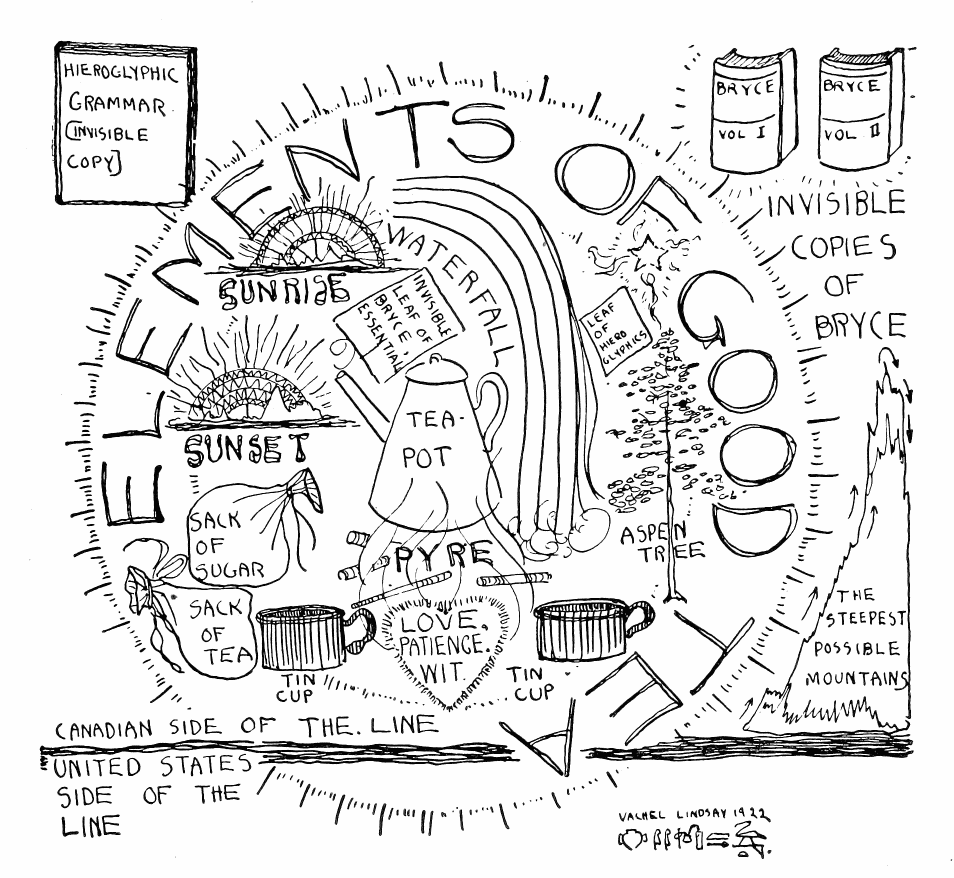 HIEROGLYPHIC
GRAMMAR.
[INVISIBLE
COPY]
BRYCE
VOL I
BRYCE
VOL II
INVISIBLE
COPIES
OF
BRYCE
ELEMENTS OF GOOD TEA
SUNRISE
WATERFALL
INVISIBLE
LEAF OF
BRYCE.
ESSENTIAL
LEAF
OF
HIERO
GLYPHICS
SUNSET
TEA-
POT
ASPEN
TREE
SACK
OF
SUGAR
PYRE
SACK
OF
TEA
LOVE.
PATIENCE.
WIT.
TIN
CUP
TIN
CUP
THE
STEEPEST
POSSIBLE
MOUNTAINS
CANADIAN SIDE OF THE. LINE
UNITED STATES
SIDE OF THE
LINE
VACHEL LINDSAY 1922